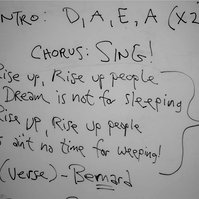 NTRO: D, A, E, A (X2
CHORUS: SING!
Rise up, Rise up people
Dream is not for sleeping
Rise up, Rise up people
s ain't no time for weeping!
(verse) - Bernard